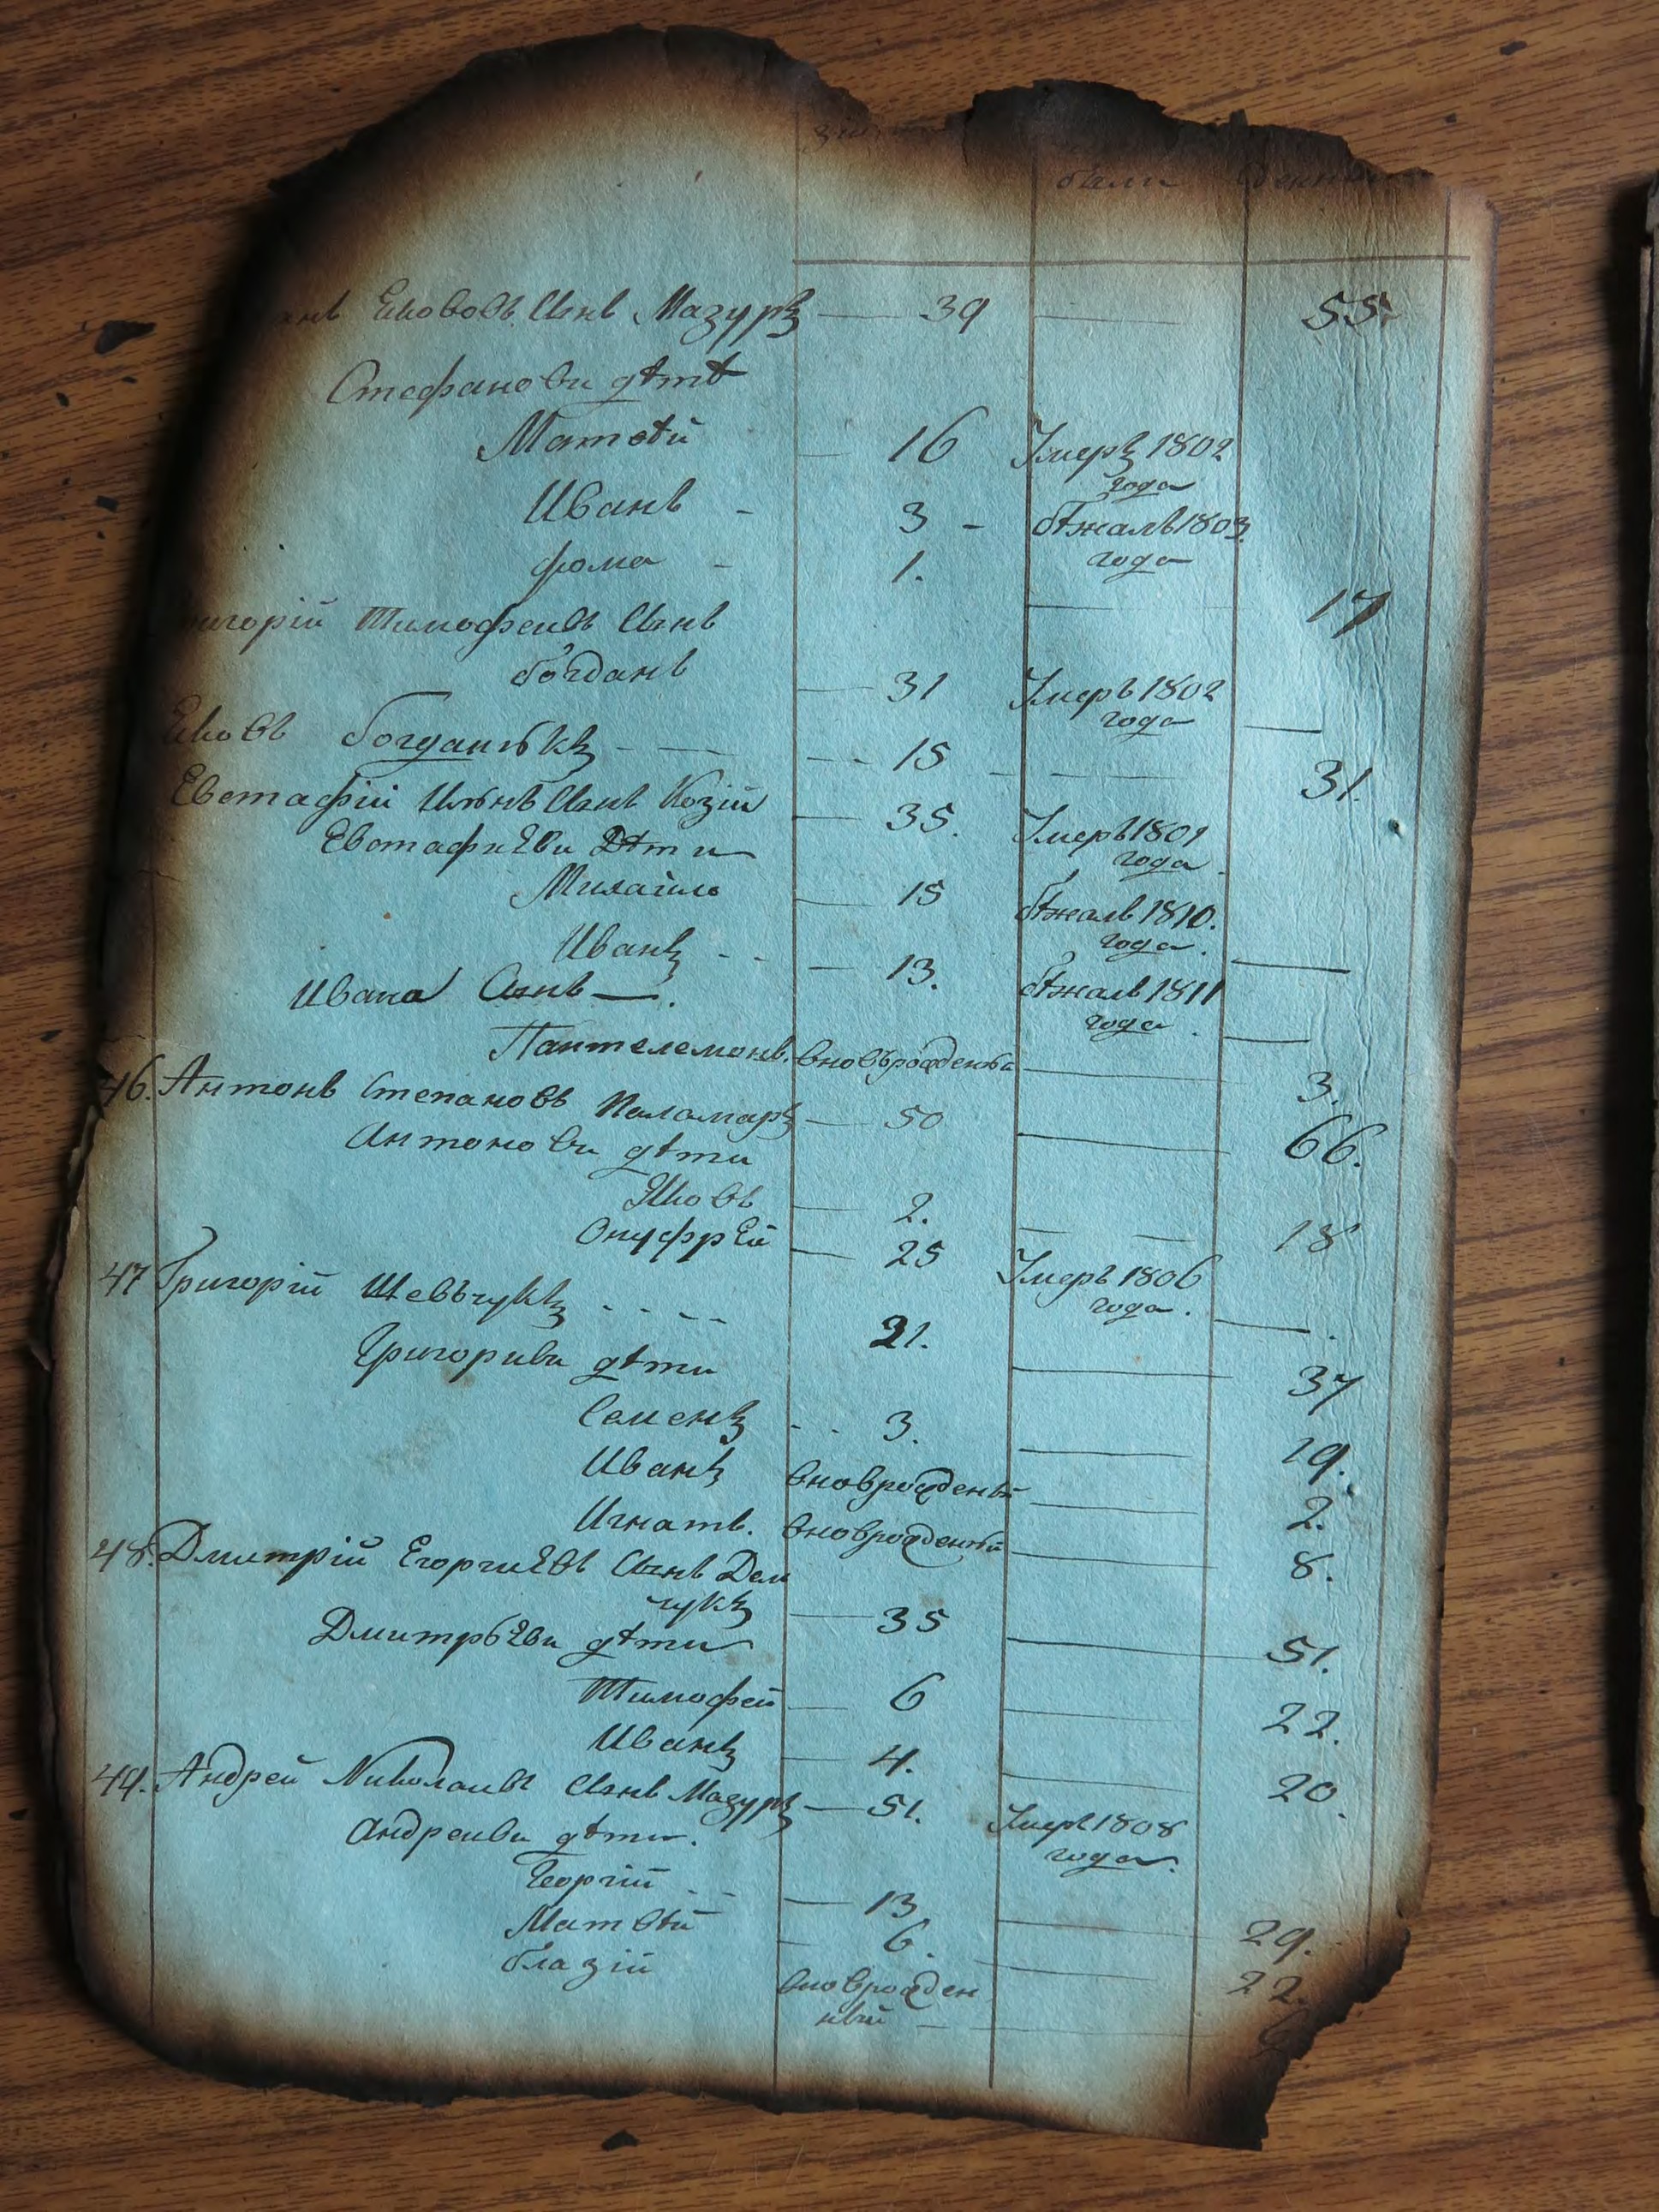 были
Яковъ Сынъ Мазуръ — 39 — 55.
Стефанови дѣтѣ
Матвѣй — 16 Умеръ 1802
года
Иванъ - 3 - бѣжалъ 1803
года
фома - 1. — 17
игорій Тимофеивъ Сынъ
богданъ — 31 Умеръ 1802
года —
Яковъ богданюкъ - — 15 — 31.
Евстафій Сынъ Козій — 35. Умеръ 1801
года
Евстафиеви Дѣти
Михайло — 15 бѣжалъ 1810.
года. —
Иванъ - - — 13. бѣжалъ 1811
года. —
Ивана Сынъ —.
Пантелемонъ. вновьрожденъ — 3.
46. Антонъ Степановъ Паламаръ — 50 — 66.
Антонови дѣти
Яковъ — 2. — 18
Онуфрей — 25 Умеръ 1806
года. — .
47 Григорій Шевьчукъ - - - - 21. — 37
Григориви дѣти
Семенъ - - 3. — 19.
Иванъ вноврожденый — 2.
Игнатъ. вноврожденый — 8.
48. Дмитрій Егоргиевъ Сынъ Дем
чукъ — 35 — 51.
Дмитрьеви дѣти
Тимофей — 6 — 22.
Иванъ — 4. — 20.
49. Андрей Николаивъ Сынъ Мазуръ — 51. Умеръ 1808
года.
Андреиви дѣти.
Георгій - - — 13 — 29.
Матвѣй — 6. — 22.
блазій вноврожден
ный —